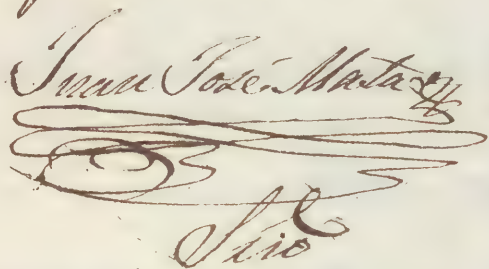 Juan José Mata
Srio